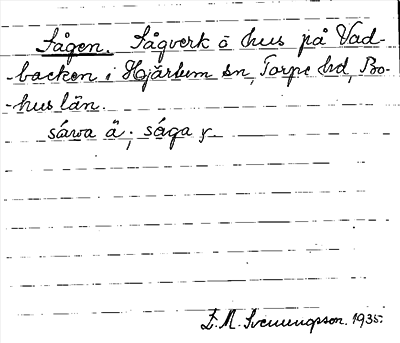 Sågen. Sågverk o hus på Vad-
-backen i Hjärtum sn, Torpe hd, Bo-
-hus län.
såwa ä ; såga y.
E. M. Svenungsson. 1935.